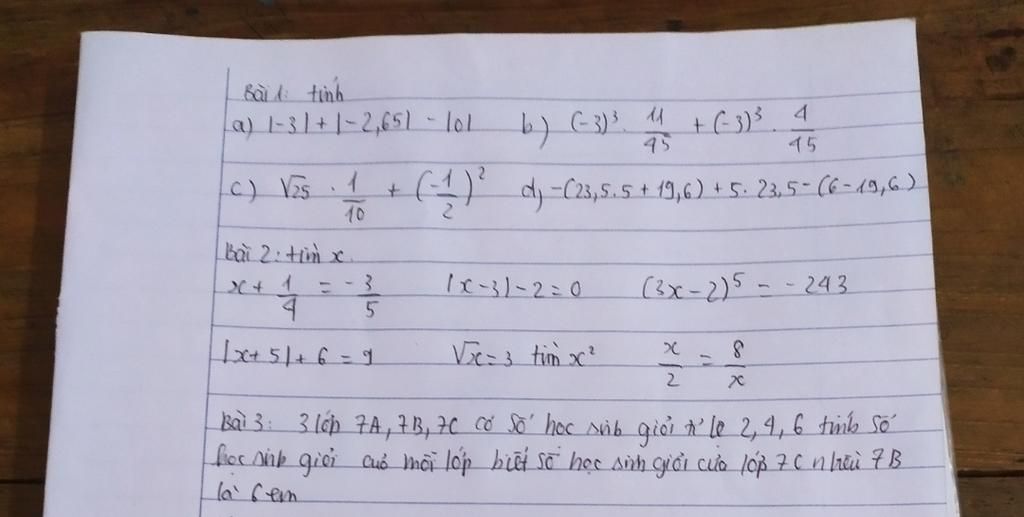 Bài 1: tính
a) |-3| + |-2,65| - |0| b) (-3)³ . 11/45 + (-3)³ . 4/45
c) √25 . 1/10 + (-1/2)² d) -(23,5.5 + 19,6) + 5.23,5 - (6 - 19,6)
Bài 2: tìm x.
x + 1/4 = -3/5 |x - 3| - 2 = 0 (3x - 2)⁵ = -243
|x + 5| + 6 = 9 √x = 3 tìm x² x/2 = 8/x
Bài 3: 3 lớp 7A, 7B, 7C có số học sinh giỏi tỉ lệ 2, 4, 6 tính số
học sinh giỏi cuả mỗi lớp biết số học sinh giỏi của lớp 7C nhiều 7B
là 6 em